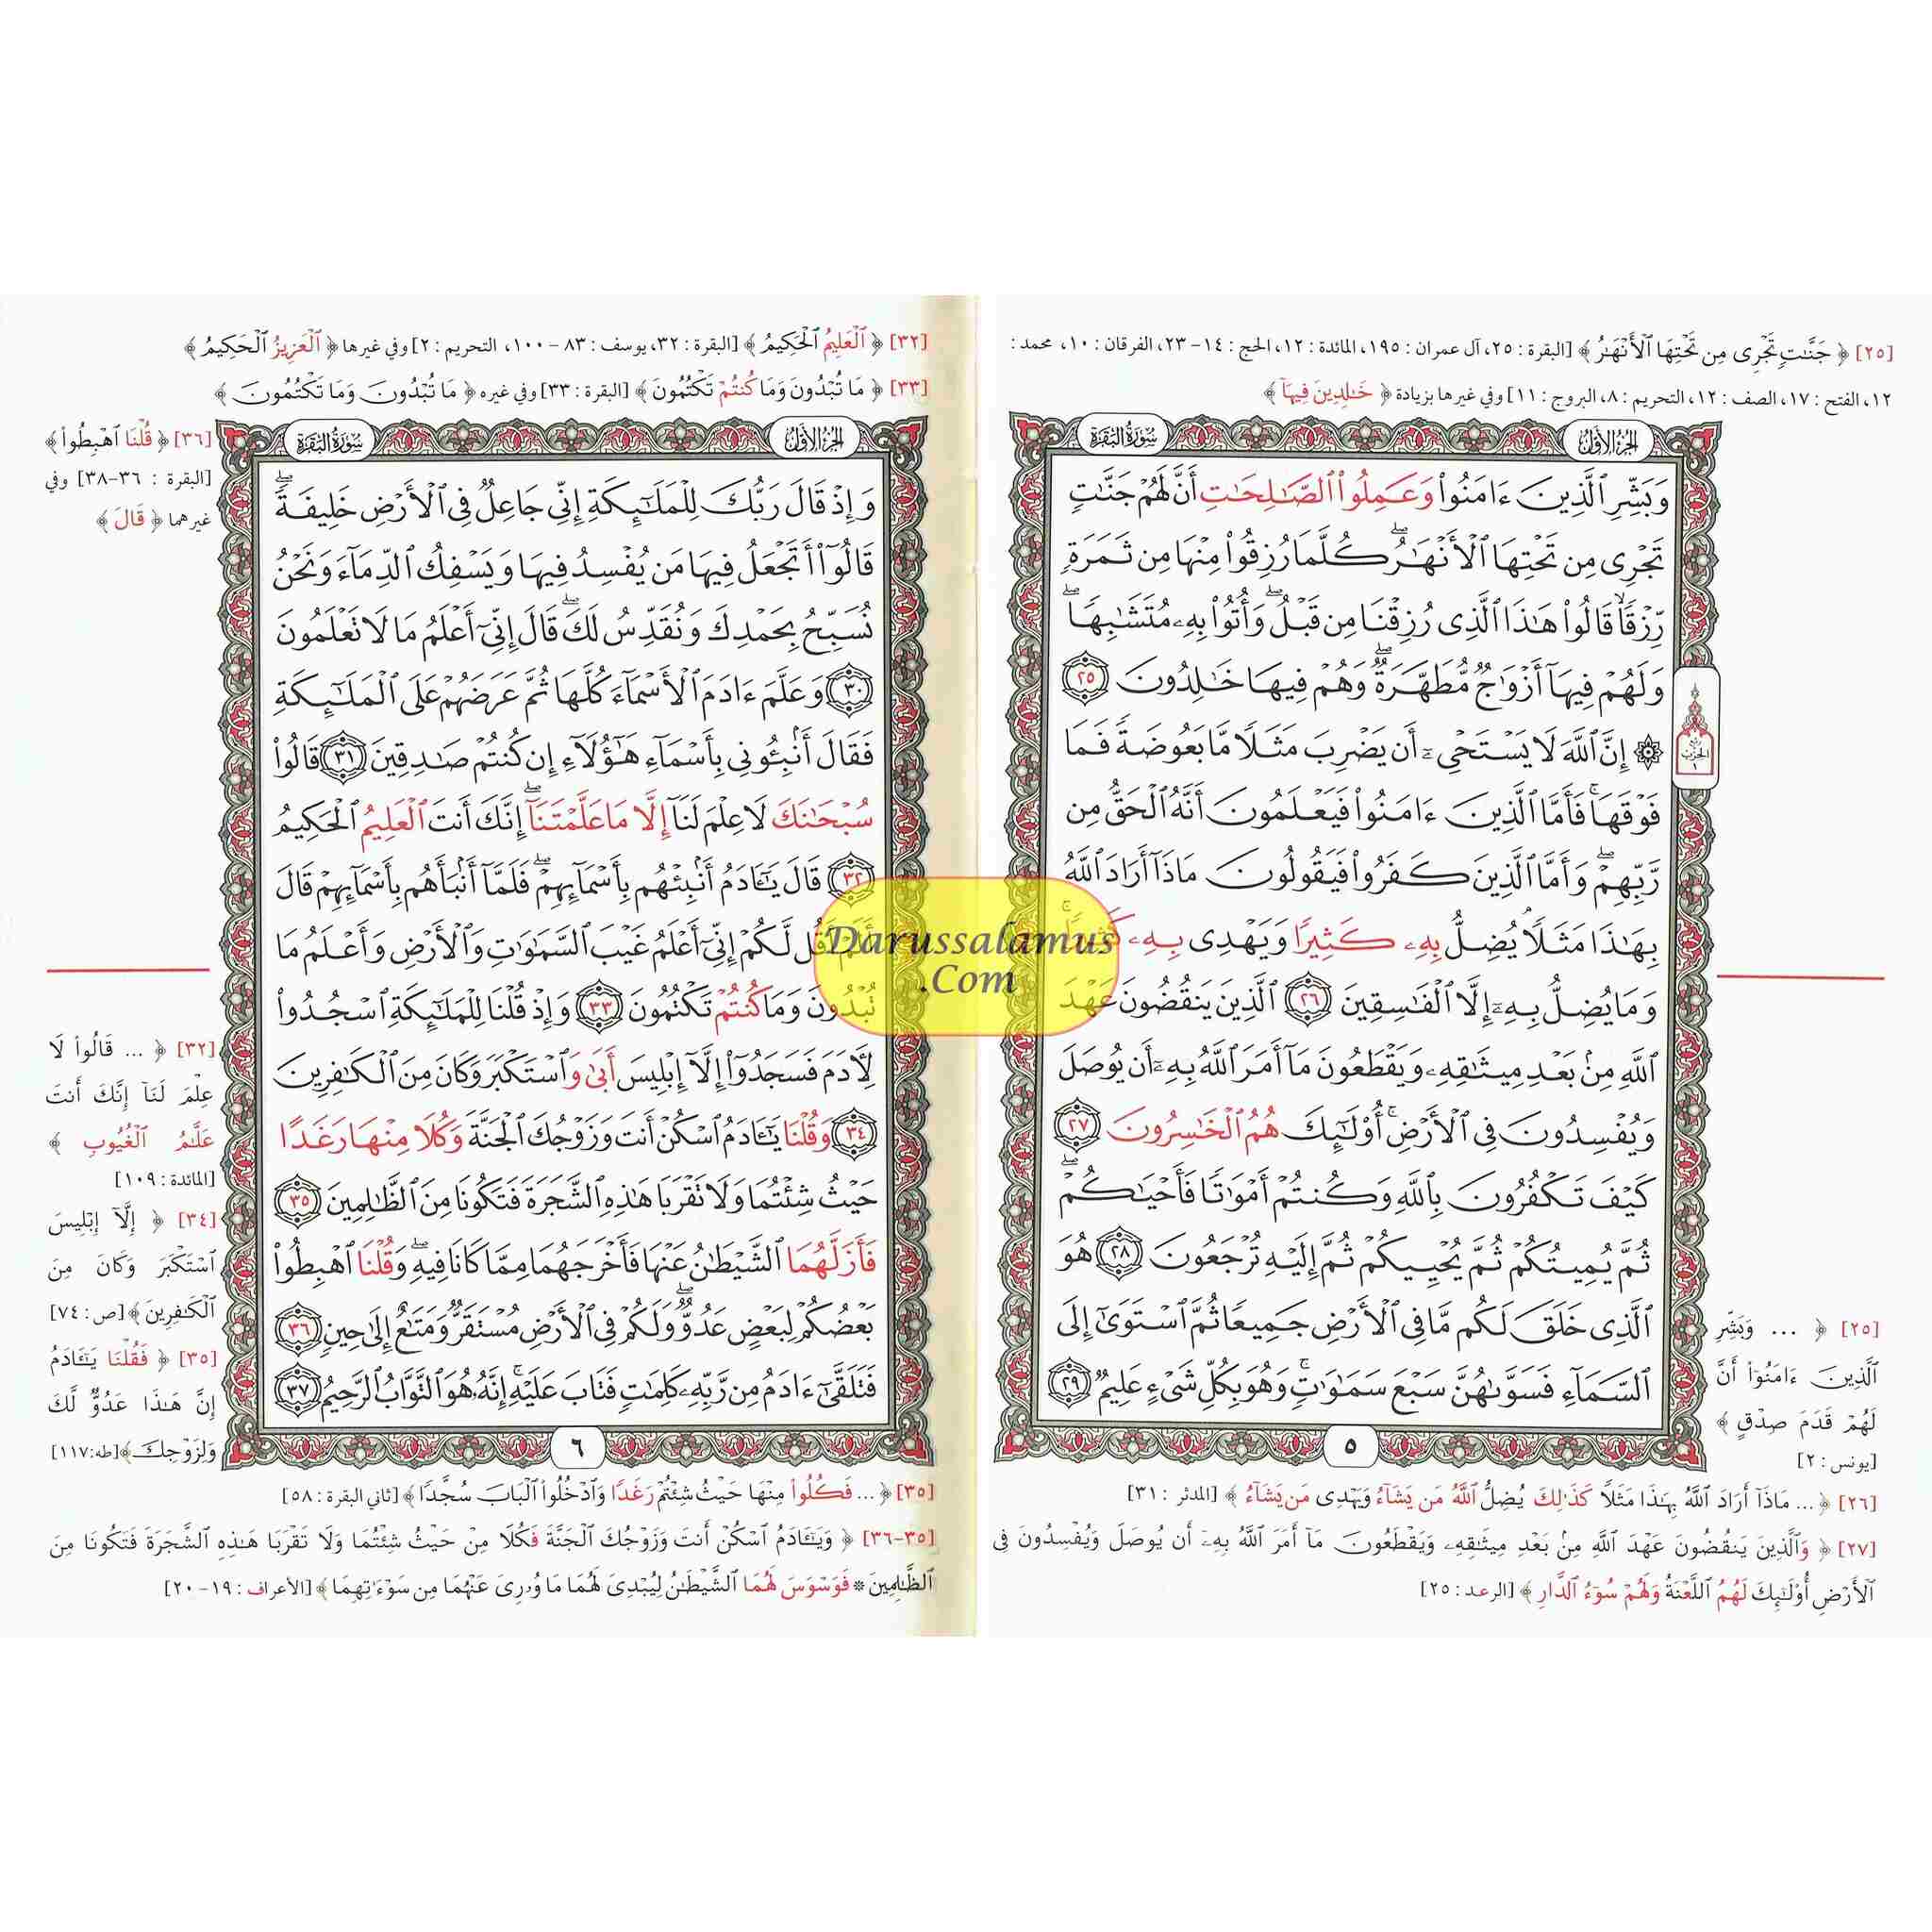 [٢٥] ﴿ جَنَّٰتٍ تَجْرِى مِن تَحْتِهَا ٱلْأَنْهَٰرُ ﴾ [البقرة : ٢٥، آل عمران : ١٩٥، المائدة : ١٢، الحج : ١٤-٢٣، الفرقان : ١٠، محمد :
١٢، الفتح : ١٧، الصف : ١٢، التحريم : ٨، البروج : ١١] وفي غيرها بزيادة ﴿ خَٰلِدِينَ فِيهَآ ﴾
الجزء الأول
سورة البقرة
وَبَشِّرِ ٱلَّذِينَ ءَامَنُوا۟ وَعَمِلُوا۟ ٱلصَّٰلِحَٰتِ أَنَّ لَهُمْ جَنَّٰتٍ
تَجْرِى مِن تَحْتِهَا ٱلْأَنْهَٰرُ ۖ كُلَّمَا رُزِقُوا۟ مِنْهَا مِن ثَمَرَةٍ
رِّزْقًا ۙ قَالُوا۟ هَٰذَا ٱلَّذِى رُزِقْنَا مِن قَبْلُ ۖ وَأُتُوا۟ بِهِۦ مُتَشَٰبِهًا ۖ
وَلَهُمْ فِيهَآ أَزْوَٰجٌ مُّطَهَّرَةٌ ۖ وَهُمْ فِيهَا خَٰلِدُونَ ٢٥
۞ إِنَّ ٱللَّهَ لَا يَسْتَحْىِۦٓ أَن يَضْرِبَ مَثَلًا مَّا بَعُوضَةً فَمَا
فَوْقَهَا ۚ فَأَمَّا ٱلَّذِينَ ءَامَنُوا۟ فَيَعْلَمُونَ أَنَّهُ ٱلْحَقُّ مِن
رَّبِّهِمْ ۖ وَأَمَّا ٱلَّذِينَ كَفَرُوا۟ فَيَقُولُونَ مَاذَآ أَرَادَ ٱللَّهُ
بِهَٰذَا مَثَلًا ۘ يُضِلُّ بِهِۦ كَثِيرًا وَيَهْدِى بِهِۦ كَثِيرًا ۚ
وَمَا يُضِلُّ بِهِۦٓ إِلَّا ٱلْفَٰسِقِينَ ٢٦ ٱلَّذِينَ يَنقُضُونَ عَهْدَ
ٱللَّهِ مِنۢ بَعْدِ مِيثَٰقِهِۦ وَيَقْطَعُونَ مَآ أَمَرَ ٱللَّهُ بِهِۦٓ أَن يُوصَلَ
وَيُفْسِدُونَ فِى ٱلْأَرْضِ ۚ أُو۟لَٰٓئِكَ هُمُ ٱلْخَٰسِرُونَ ٢٧
كَيْفَ تَكْفُرُونَ بِٱللَّهِ وَكُنتُمْ أَمْوَٰتًا فَأَحْيَٰكُمْ ۖ
ثُمَّ يُمِيتُكُمْ ثُمَّ يُحْيِيكُمْ ثُمَّ إِلَيْهِ تُرْجَعُونَ ٢٨ هُوَ
ٱلَّذِى خَلَقَ لَكُم مَّا فِى ٱلْأَرْضِ جَمِيعًا ثُمَّ ٱسْتَوَىٰٓ إِلَى
ٱلسَّمَآءِ فَسَوَّىٰهُنَّ سَبْعَ سَمَٰوَٰتٍ ۚ وَهُوَ بِكُلِّ شَىْءٍ عَلِيمٌ ٢٩
٥
الحزب
١
[٢٥] ﴿ ... وَبَشِّرِ
ٱلَّذِينَ ءَامَنُوٓا۟ أَنَّ
لَهُمْ قَدَمَ صِدْقٍ ﴾
[يونس : ٢]
[٢٦] ﴿ ... مَاذَآ أَرَادَ ٱللَّهُ بِهَٰذَا مَثَلًا كَذَٰلِكَ يُضِلُّ ٱللَّهُ مَن يَشَآءُ وَيَهْدِى مَن يَشَآءُ ﴾ [المدثر : ٣١]
[٢٧] ﴿ وَٱلَّذِينَ يَنقُضُونَ عَهْدَ ٱللَّهِ مِنۢ بَعْدِ مِيثَٰقِهِۦ وَيَقْطَعُونَ مَآ أَمَرَ ٱللَّهُ بِهِۦٓ أَن يُوصَلَ وَيُفْسِدُونَ فِى
ٱلْأَرْضِ أُو۟لَٰٓئِكَ لَهُمُ ٱللَّعْنَةُ وَلَهُمْ سُوٓءُ ٱلدَّارِ ﴾ [الرعد : ٢٥]
[٣٢] ﴿ ٱلْعَلِيمُ ٱلْحَكِيمُ ﴾ [البقرة : ٣٢، يوسف : ٨٣ - ١٠٠، التحريم : ٢] وفي غيرها ﴿ ٱلْعَزِيزُ ٱلْحَكِيمُ ﴾
[٣٣] ﴿ مَا تُبْدُونَ وَمَا كُنتُمْ تَكْتُمُونَ ﴾ [البقرة : ٣٣] وفي غيره ﴿ مَا تُبْدُونَ وَمَا تَكْتُمُونَ ﴾
[٣٦] ﴿ قُلْنَا ٱهْبِطُوا۟ ﴾
[البقرة : ٣٦-٣٨] وفي
غيرهما ﴿ قَالَ ﴾
الجزء الأول
سورة البقرة
وَإِذْ قَالَ رَبُّكَ لِلْمَلَٰٓئِكَةِ إِنِّى جَاعِلٌ فِى ٱلْأَرْضِ خَلِيفَةً ۖ
قَالُوٓا۟ أَتَجْعَلُ فِيهَا مَن يُفْسِدُ فِيهَا وَيَسْفِكُ ٱلدِّمَآءَ وَنَحْنُ
نُسَبِّحُ بِحَمْدِكَ وَنُقَدِّسُ لَكَ ۖ قَالَ إِنِّىٓ أَعْلَمُ مَا لَا تَعْلَمُونَ
٣٠ وَعَلَّمَ ءَادَمَ ٱلْأَسْمَآءَ كُلَّهَا ثُمَّ عَرَضَهُمْ عَلَى ٱلْمَلَٰٓئِكَةِ
فَقَالَ أَنۢبِـُٔونِى بِأَسْمَآءِ هَٰٓؤُلَآءِ إِن كُنتُمْ صَٰدِقِينَ ٣١ قَالُوا۟
سُبْحَٰنَكَ لَا عِلْمَ لَنَآ إِلَّا مَا عَلَّمْتَنَآ ۖ إِنَّكَ أَنتَ ٱلْعَلِيمُ ٱلْحَكِيمُ
٣٢ قَالَ يَٰٓـَٔادَمُ أَنۢبِئْهُم بِأَسْمَآئِهِمْ ۖ فَلَمَّآ أَنۢبَأَهُم بِأَسْمَآئِهِمْ قَالَ
أَلَمْ أَقُل لَّكُمْ إِنِّىٓ أَعْلَمُ غَيْبَ ٱلسَّمَٰوَٰتِ وَٱلْأَرْضِ وَأَعْلَمُ مَا
تُبْدُونَ وَمَا كُنتُمْ تَكْتُمُونَ ٣٣ وَإِذْ قُلْنَا لِلْمَلَٰٓئِكَةِ ٱسْجُدُوا۟
لِـَٔادَمَ فَسَجَدُوٓا۟ إِلَّآ إِبْلِيسَ أَبَىٰ وَٱسْتَكْبَرَ وَكَانَ مِنَ ٱلْكَٰفِرِينَ
٣٤ وَقُلْنَا يَٰٓـَٔادَمُ ٱسْكُنْ أَنتَ وَزَوْجُكَ ٱلْجَنَّةَ وَكُلَا مِنْهَا رَغَدًا
حَيْثُ شِئْتُمَا وَلَا تَقْرَبَا هَٰذِهِ ٱلشَّجَرَةَ فَتَكُونَا مِنَ ٱلظَّٰلِمِينَ ٣٥
فَأَزَلَّهُمَا ٱلشَّيْطَٰنُ عَنْهَا فَأَخْرَجَهُمَا مِمَّا كَانَا فِيهِ ۖ وَقُلْنَا ٱهْبِطُوا۟
بَعْضُكُمْ لِبَعْضٍ عَدُوٌّ ۖ وَلَكُمْ فِى ٱلْأَرْضِ مُسْتَقَرٌّ وَمَتَٰعٌ إِلَىٰ حِينٍ ٣٦
فَتَلَقَّىٰٓ ءَادَمُ مِن رَّبِّهِۦ كَلِمَٰتٍ فَتَابَ عَلَيْهِ ۚ إِنَّهُۥ هُوَ ٱلتَّوَّابُ ٱلرَّحِيمُ ٣٧
٦
[٣٢] ﴿ ... قَالُوا۟ لَا
عِلْمَ لَنَآ إِنَّكَ أَنتَ
عَلَّٰمُ ٱلْغُيُوبِ ﴾
[المائدة : ١٠٩]
[٣٤] ﴿ إِلَّآ إِبْلِيسَ
ٱسْتَكْبَرَ وَكَانَ مِنَ
ٱلْكَٰفِرِينَ ﴾ [ص : ٧٤]
[٣٥] ﴿ فَقُلْنَا يَٰٓـَٔادَمُ
إِنَّ هَٰذَا عَدُوٌّ لَّكَ
وَلِزَوْجِكَ ﴾ [طه: ١١٧]
[٣٥] ﴿ ... فَكُلُوا۟ مِنْهَا حَيْثُ شِئْتُمْ رَغَدًا وَٱدْخُلُوا۟ ٱلْبَابَ سُجَّدًا ﴾ [ثاني البقرة : ٥٨]
[٣٥-٣٦] ﴿ وَيَٰٓـَٔادَمُ ٱسْكُنْ أَنتَ وَزَوْجُكَ ٱلْجَنَّةَ فَكُلَا مِنْ حَيْثُ شِئْتُمَا وَلَا تَقْرَبَا هَٰذِهِ ٱلشَّجَرَةَ فَتَكُونَا مِنَ
ٱلظَّٰلِمِينَ * فَوَسْوَسَ لَهُمَا ٱلشَّيْطَٰنُ لِيُبْدِىَ لَهُمَا مَا وُۥرِىَ عَنْهُمَا مِن سَوْءَٰتِهِمَا ﴾ [الأعراف : ١٩-٢٠]
Darussalamus
.Com